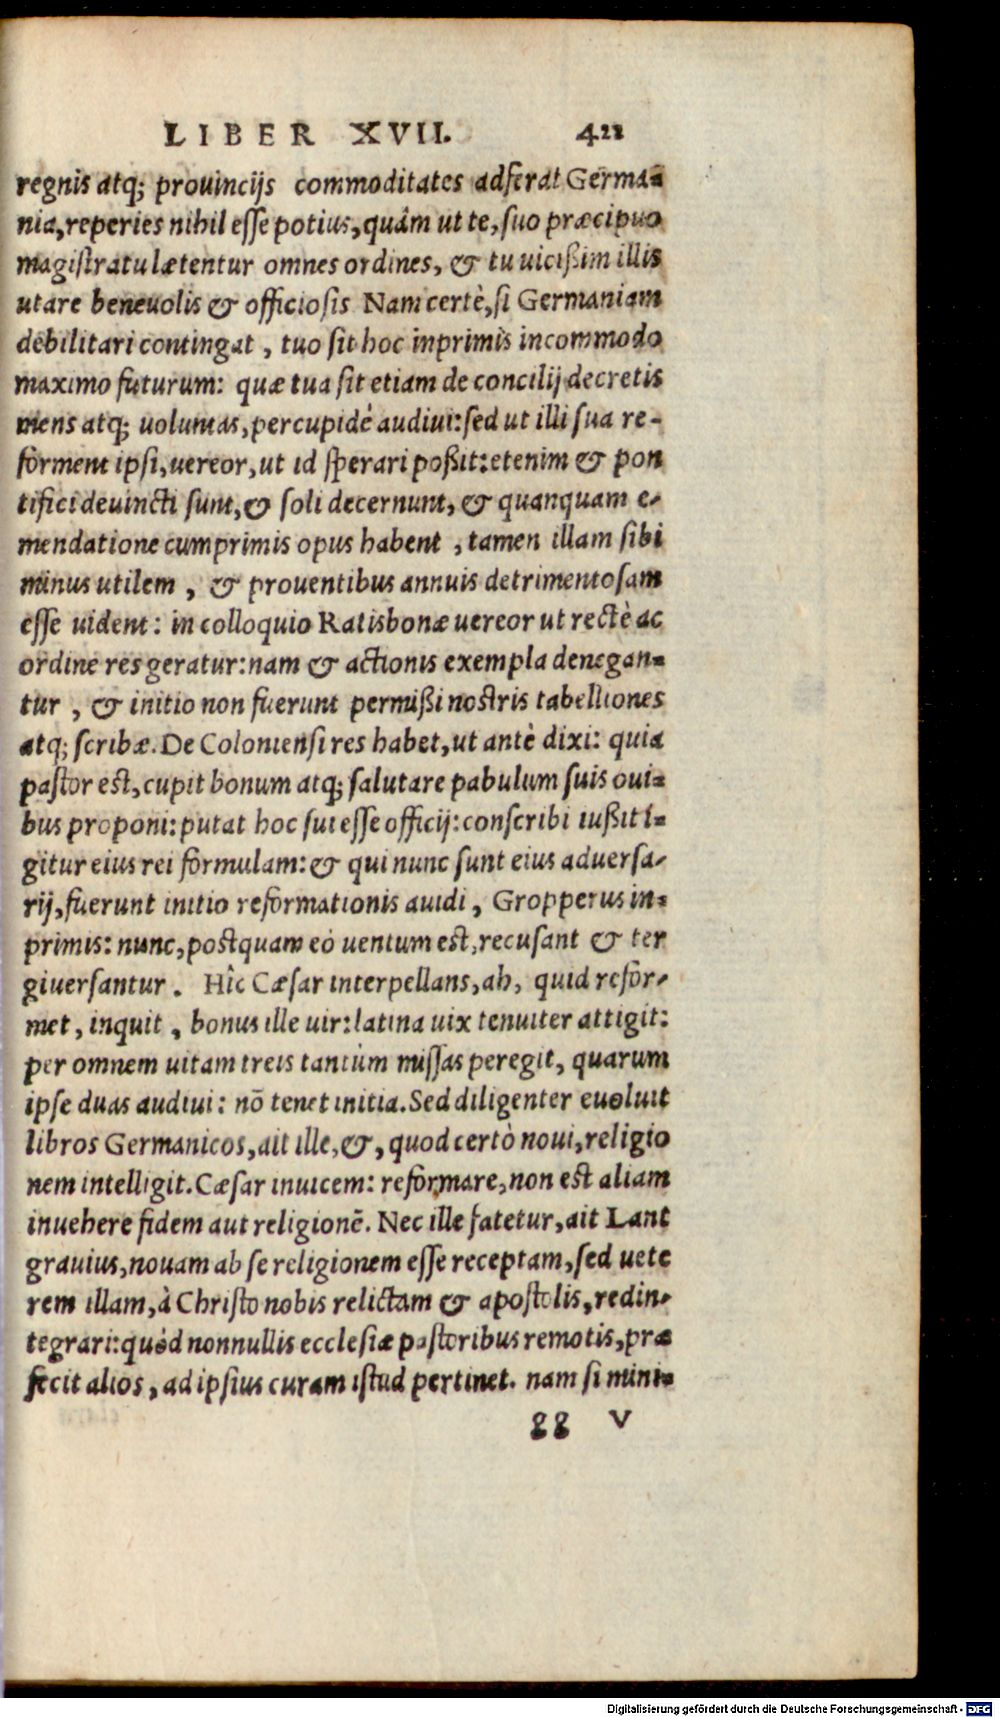 LIBER XVII. 421
regnis atq; prouincijs commoditates adferat Germa=
nia, reperies nihil esse potius, quâm ut te, suo præcipuo
magistratu lætentur omnes ordines, & tu uicißim illis
utare beneuolis & officiosis Nam certè, si Germaniam
debilitari contingat, tuo sit hoc inprimis incommodo
maximo futurum: quæ tua sit etiam de concilij decretis
mens atq; uoluntas, percupidè audiui: sed ut illi sua re-
forment ipsi, uereor, ut id sperari poßit: etenim & pon
tifici deuincti sunt, & soli decernunt, & quanquam e-
mendatione cumprimis opus habent, tamen illam sibi
minus utilem, & prouentibus annuis detrimentosam
esse uident: in colloquio Ratisbonæ uereor ut rectè ac
ordine res geratur: nam & actionis exempla denegan=
tur, & initio non fuerunt permißi nostris tabelliones
atq; scribæ. De Coloniensi res habet, ut antè dixi: quia
pastor est, cupit bonum atq; salutare pabulum suis oui=
bus proponi: putat hoc sui esse officij: conscribi iußit i=
gitur eius rei formulam: & qui nunc sunt eius aduersa-
rij, fuerunt initio reformationis auidi, Gropperus in=
primis: nunc, postquam eò uentum est, recusant & ter
giuersantur. Hîc Cæsar interpellans, ah, quid refor-
met, inquit, bonus ille uir: latina uix tenuiter attigit:
per omnem uitam treis tantùm missas peregit, quarum
ipse duas audiui: nō tenet initia. Sed diligenter euoluit
libros Germanicos, ait ille, &, quod certò noui, religio
nem intelligit. Cæsar inuicem: reformare, non est aliam
inuehere fidem aut religionē. Nec ille fatetur, ait Lant
grauius, nouam ab se religionem esse receptam, sed uete
rem illam, à Christo nobis relictam & apostolis, redin-
tegrari: quòd nonnullis ecclesiæ pastoribus remotis, præ
fecit alios, ad ipsius curam istud pertinet. nam si mini=
gg v
Digitalisierung gefördert durch die Deutsche Forschungsgemeinschaft - DFG